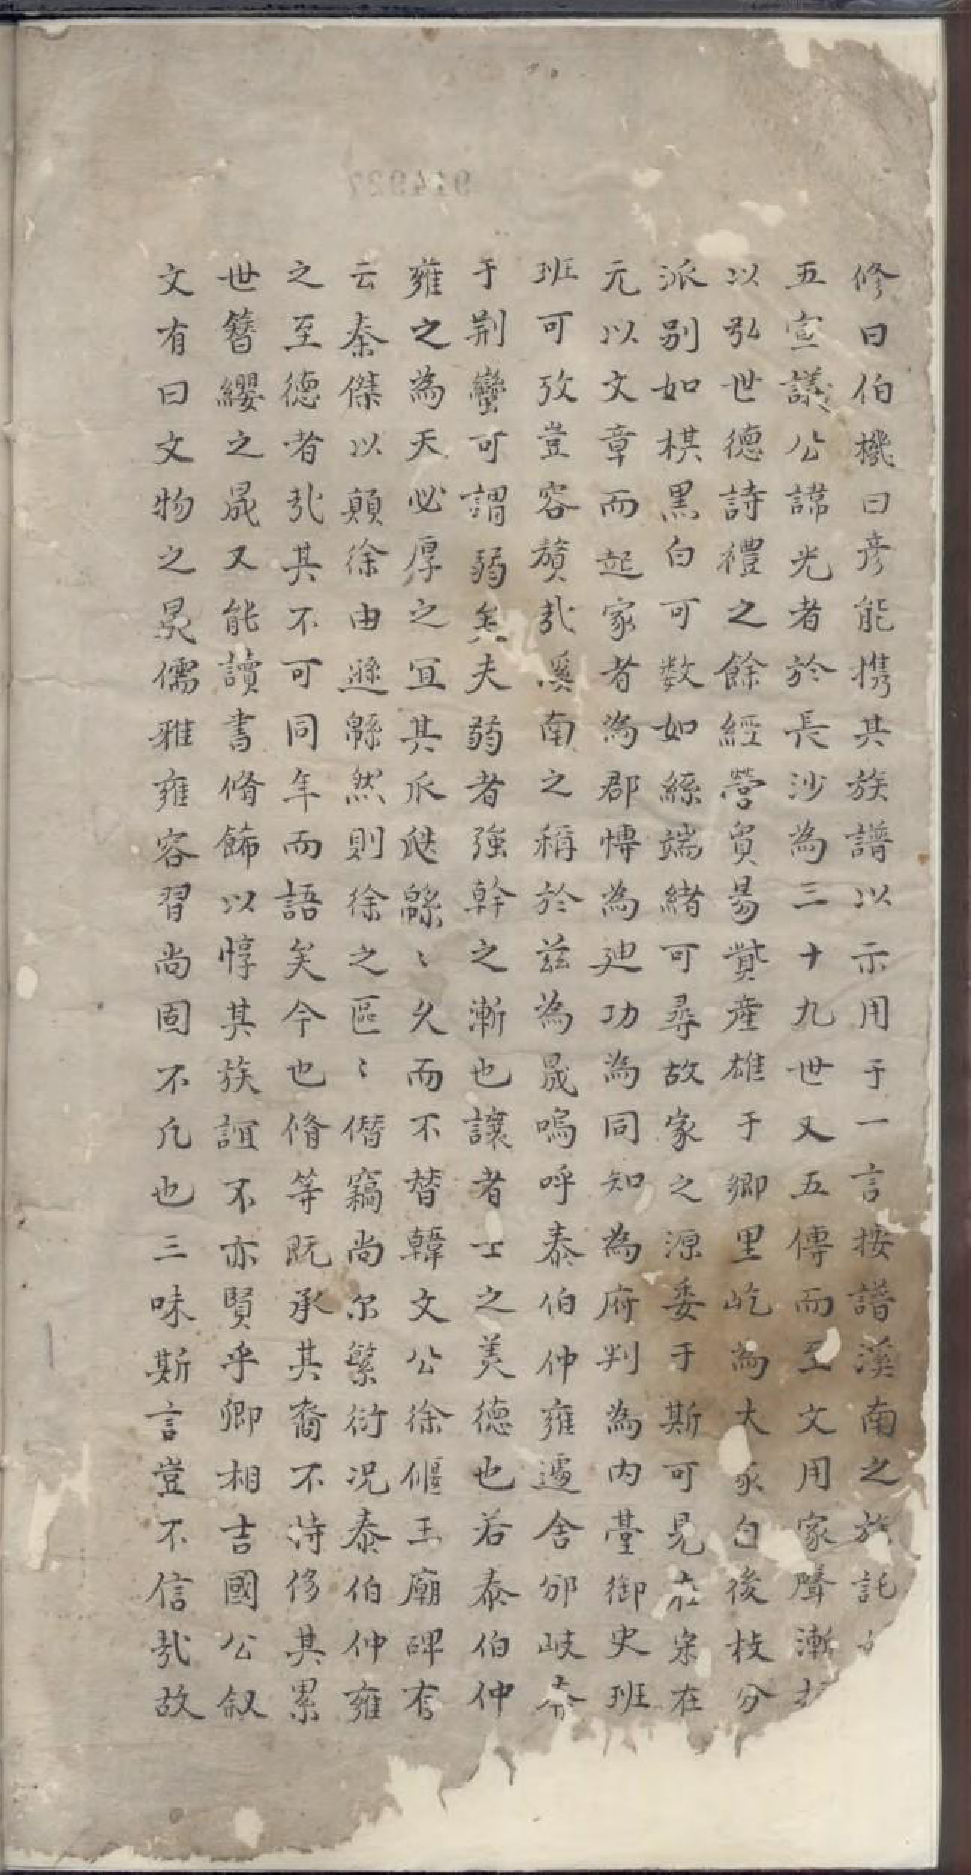 修曰伯機曰彦能携其族譜以示用于一言按譜溪南之族託
五宣議公諱光者於長沙為三十九世又五傳而至文用家聲漸
以弘世德詩禮之餘經營貿易貲産雄于鄉里屹為大家自後枝分
派别如棋黑白可数如絲端緒可尋故家之源委于斯可見在宋在
元以文章而起家者為郡博為廸功為同知為府判為内臺御史班
班可攷豈容贅㢤溪南之稱於兹為晟嗚呼泰伯仲雍遜舍邠岐奔
于荆蠻可謂弱矣夫弱者強幹之漸也讓者士之美德也若泰伯仲
雍之為天必厚之宜其瓜瓞緜〻久而不替韓文公徐偃王廟碑有
云秦傑以顛徐由遜緜然則徐之區〻僭竊尚尔繁衍况泰伯仲雍
之至德者㢤其不可同年而語矣今也脩等既承其裔不特侈其累
世簪纓之晟又能讀書脩飾以惇其族誼不亦賢乎鄉相吉國公叙
文有曰文物之晁儒雅雍容習尚固不凢也三味斯言豈不信㢤故
914927